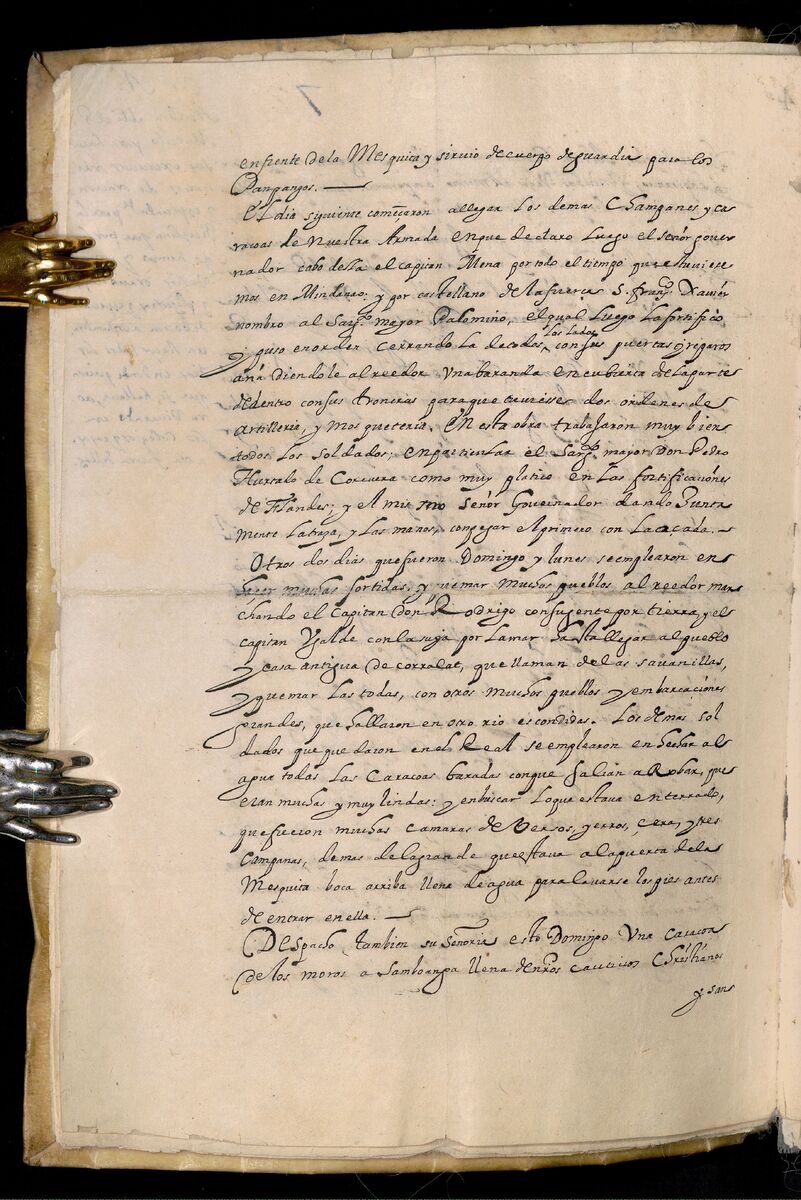 7
enfrente dela Mesquita y siruio de cuerpo de guardia para los
Panpangos.
El dia siguiente començaron allegar los demas Champanes y ca
racoas de nuestra Armada en que declaro luego el señor gouer
nador cabo desta el capitan Mena por todo el tiempo que estuviese
mos en Mindanao; y por castellano de la fuerça S. franco Xauier
nombro al Sargto mayor Palomino, el qual luego la fortifico
y puso en orden cerrandola de todos los lados con sus puertas y reparos
añadiendole al reedor una baranda encubierta de la parte
de dentro con sus troneras para que tuuiesse dos ordenes de
artilleria, y mosqueteria. En esta obra trabajaron muy bien
todos los soldados; en particular el Sargto mayor Don Pedro
Hurtado de Corcuera como muy platico en las fortificaciones
de Flandes; y el mismo Señor Governador dando
mente la traça, y las manos, con ser el primero con la açada.
Otros dos dias que fueron Domingo y lunes se emplearon en
hacer muchas sortidas, y quemar muchos pueblos al reedor mar
chando el Capitan Don Rodrigo con su gente por tierra, y el
capitan Ugalde con la suya por la mar hasta llegar al pueblo
y casa antigua de corralat, que llaman de las sauanillas,
y quemarlas todas, con otros muchos pueblos y embarcaciones
grandes, que hallaron en otro rio escondidas. Los demas sol
dados que quedaron en el Real se emplearon en hechar al
agua todas las caracoas baradas con que salian a Robar, que
eran muchas y muy lindas: y en buscar lo que estava enterrado,
que fueron muchas camaras de Versos, yerros, cera, y tres
Campanas, demas de la grande que estava a la puerta de la
Mesquita boca arriba llena de agua para lauarse los pies antes
de entrar en ella.
Despacho tambien su Señoria este Domingo una caracoa
de los moros a Samboanga llena de nros cautiuos Christianos
y san